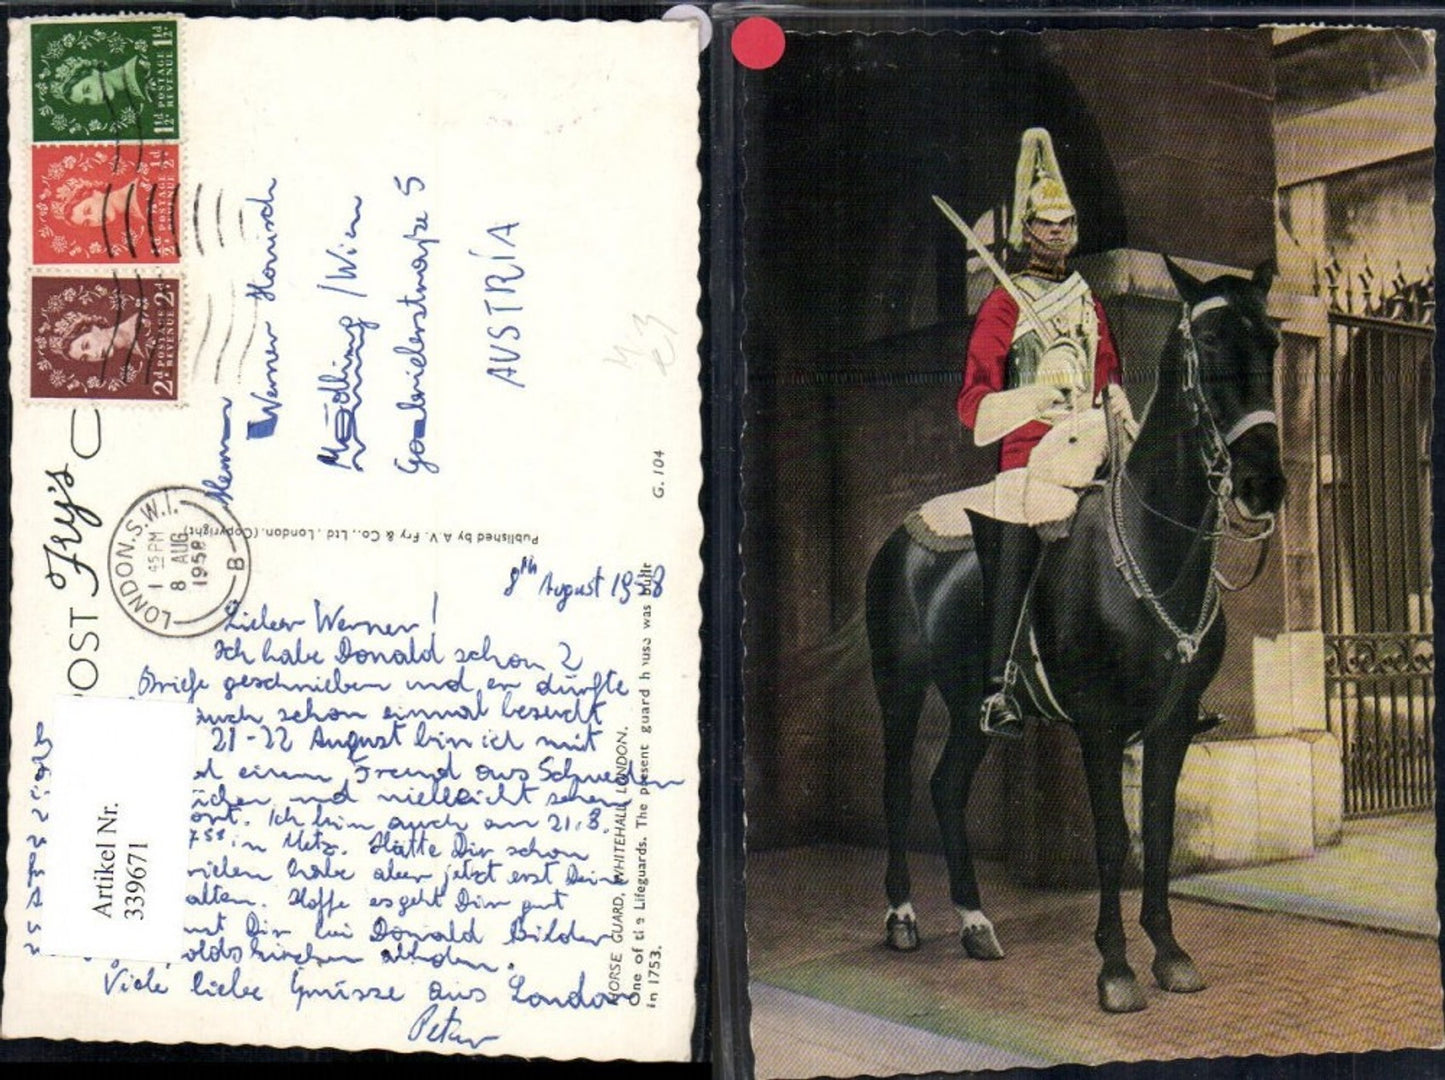 1½d POSTAGE REVENUE 1½d
½d POSTAGE REVENUE ½d
2d POSTAGE REVENUE 2d
POST
Fry's
LONDON. S.W.1.
1 45 PM
8 AUG
1958
B
Herrn
Werner Hanisch
Mödling / Wien
Gabrielerstraße 5
AUSTRIA
G. 104
Published by A. V. Fry & Co., Ltd., London. (Copyright)
8th August 1958
Lieber Werner!
Ich habe Donald schon 2
Briefe geschrieben und er dürfte
auch schon einmal besucht
21-22 August bin ich mit
einem Freund aus Schweden
und vielleicht schon
Ich bin auch am 21.8.
in Metz. Hätte Dir schon
habe aber jetzt erst Deine
alten. Hoffe es geht Dir gut
Dir bei Donald Bilder
abholen.
Viele liebe Grüsse aus London
Peter
HORSE GUARD, WHITEHALL, LONDON.
One of the Lifeguards. The present guard house was built
in 1753.
Artikel Nr.
339671